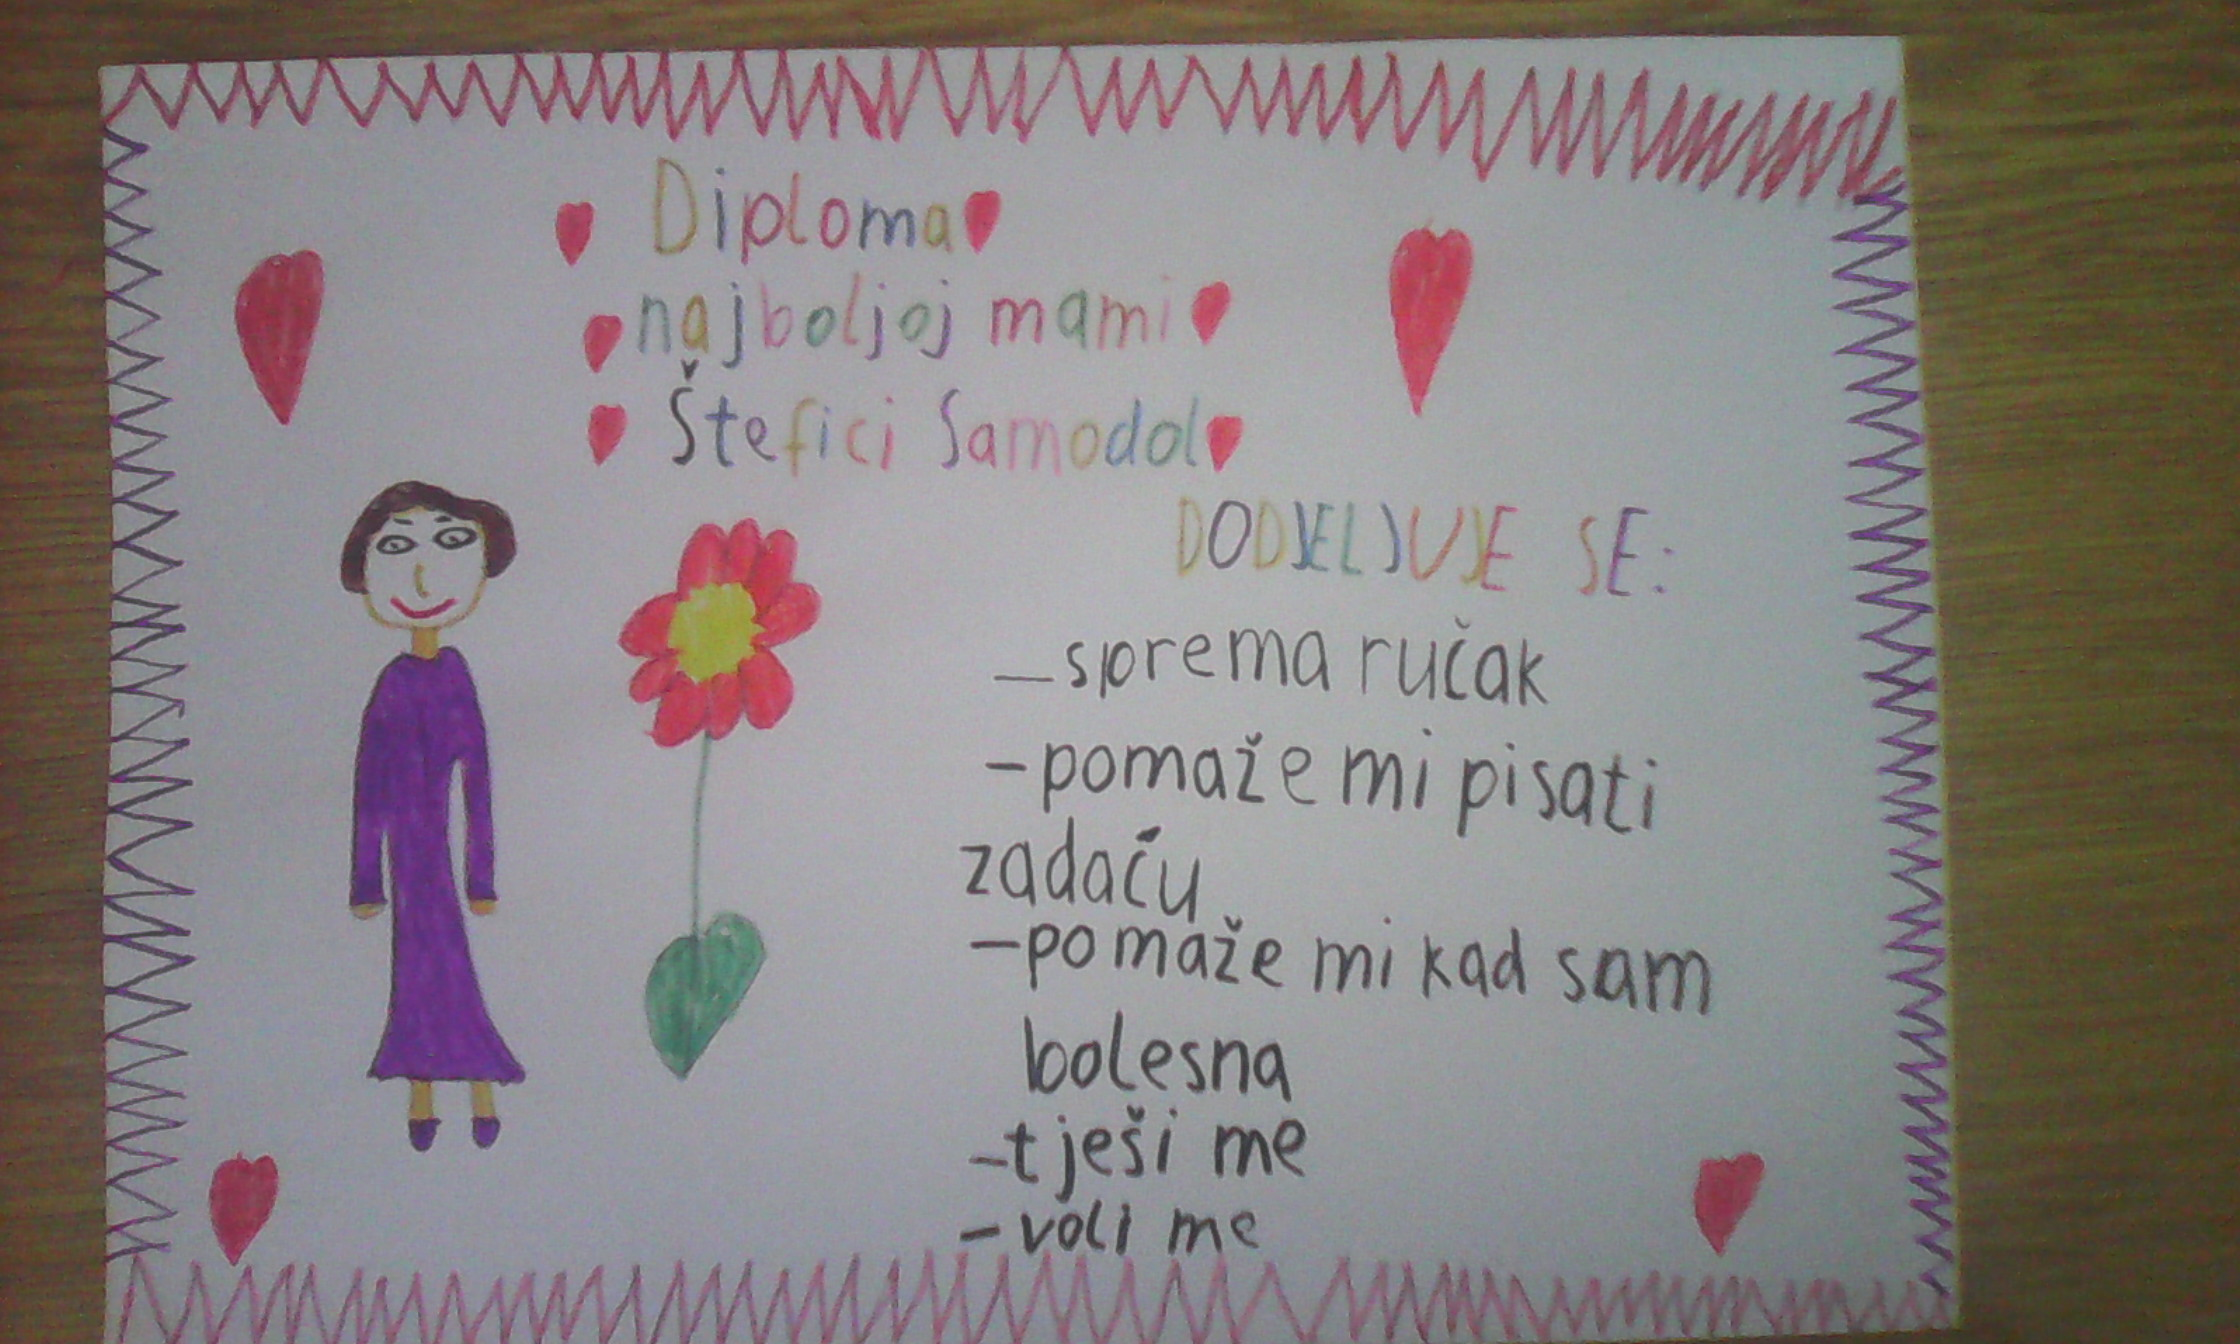 Diploma
najboljoj mami
Štefici Samodol
DODJELJUJE SE:
-sprema ručak
-pomaže mi pisati
zadaću
-pomaže mi kad sam
bolesna
-tješi me
-voli me